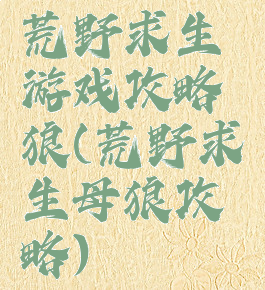 荒野求生
游戏攻略
狼(荒野求
生母狼攻
略)